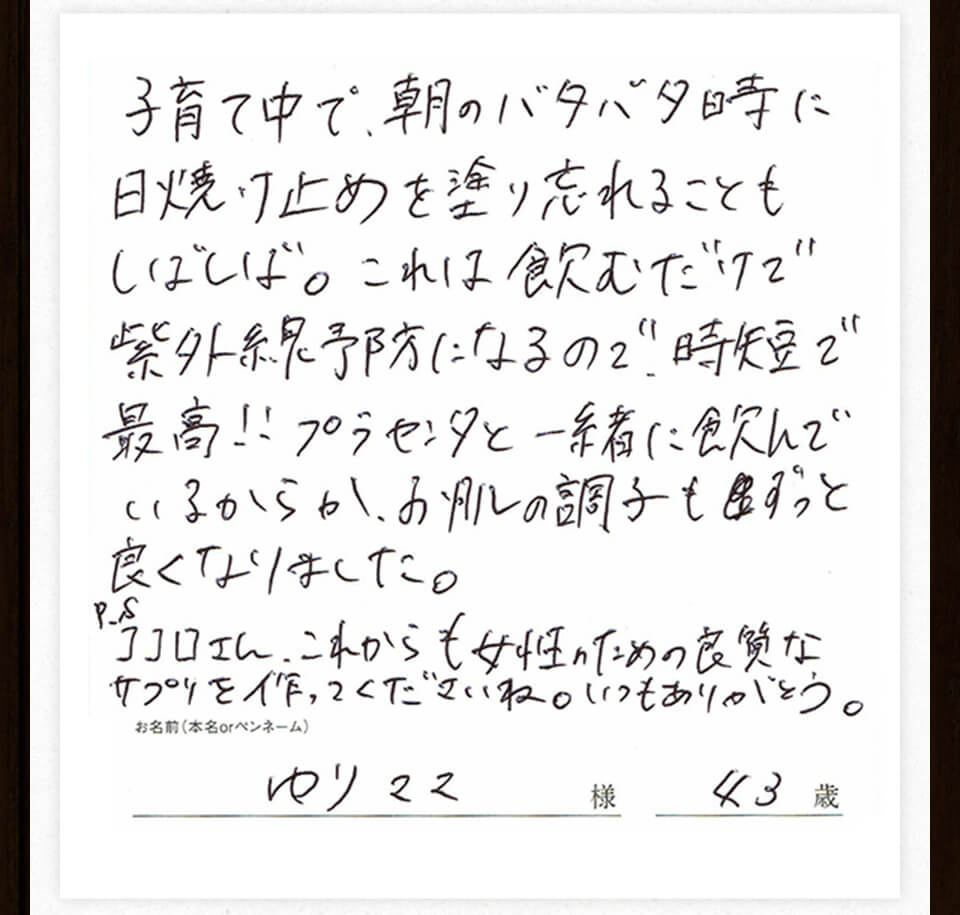 子育て中で、朝のバタバタ時に
日焼け止めを塗り忘れることも
しばしば。これは飲むだけで
紫外線予防になるので、時短で
最高!!プラセンタと一緒に飲んで
いるからか、お肌の調子もずっと
良くなりました。
P.S
ココロさん、これからも女性のための良質な
サプリを作ってくださいね。いつもありがとう。
お名前(本名orペンネーム)
ゆりママ 様 43 歳